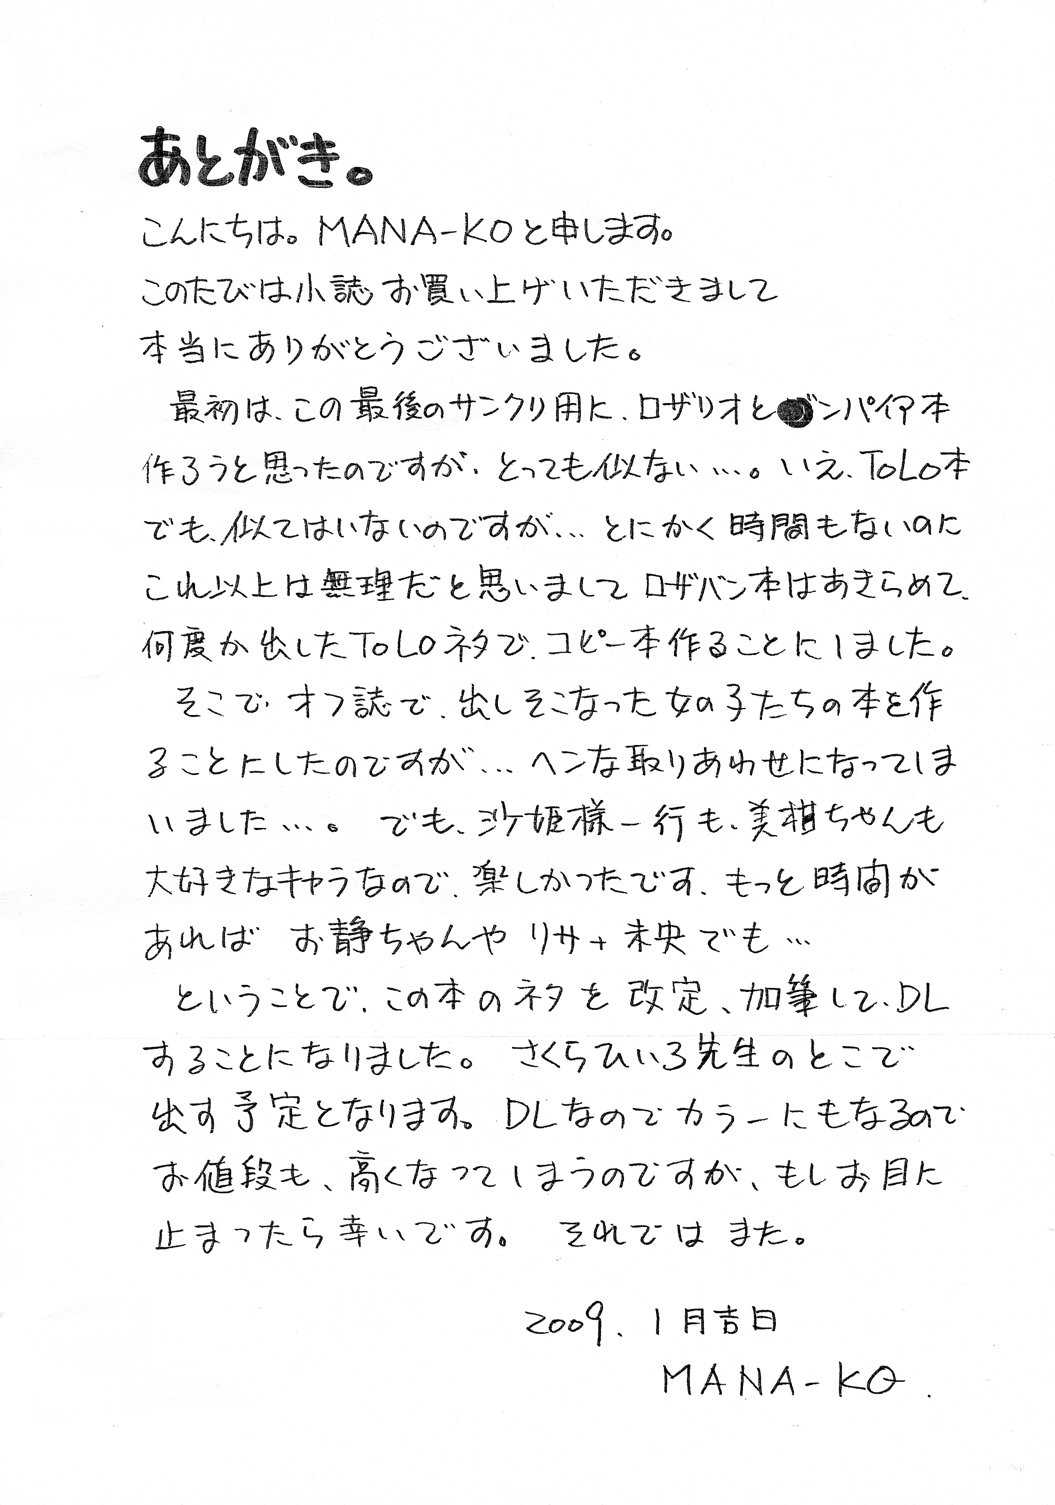 あとがき。
こんにちは。MANA-KOと申します。
このたびは小誌お買い上げいただきまして
本当にありがとうございました。
最初は、この最後のサンクリ用に、ロザリオとバンパイア本
作ろうと思ったのですが、とっても似ない…。いえ、ToLO本
でも、似てはいないのですが…とにかく時間もないのに
これ以上は無理だと思いまして ロザバン本はあきらめて、
何度か出したToLOネタで、コピー本作ることにしました。
そこで オフ誌で、出しそこなった女の子たちの本を作
ることにしたのですが…ヘンな取りあわせになってしま
いました…。 でも、沙姫様一行も、美柑ちゃんも
大好きなキャラなので、楽しかったです、もっと時間が
あれば お静ちゃんや リサ+未央でも…
ということで、この本のネタを改定、加筆して、DL
することになりました。 さくらひいろ先生のとこで
出す予定となります。DLなのでカラーにもなるので
お値段も、高くなってしまうのですが、もしお目に
止まったら幸いです。 それでは また。
2009. 1月吉日
MANA-KO.